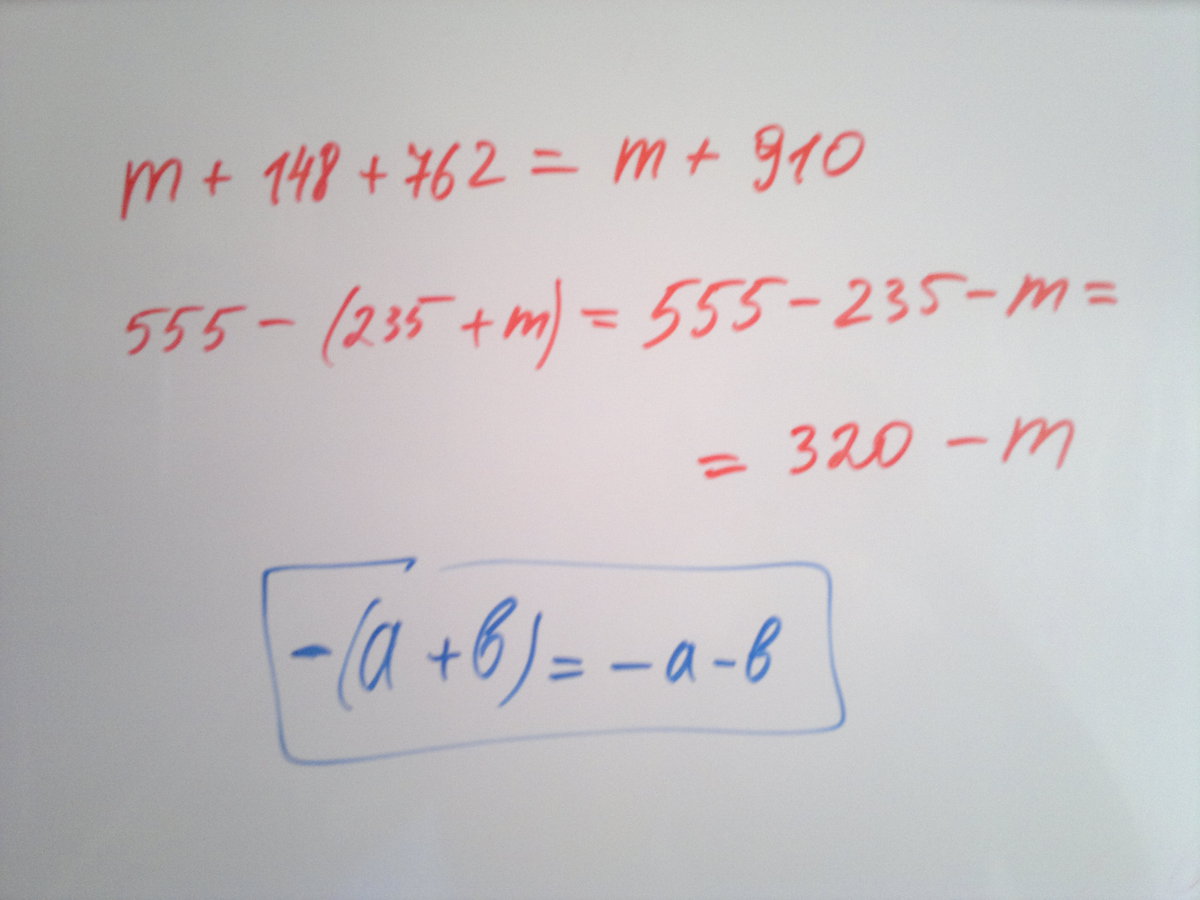 m + 148 + 762 = m + 910
555 - (235 + m) = 555 - 235 - m =
= 320 - m
-(a + b) = - a - b